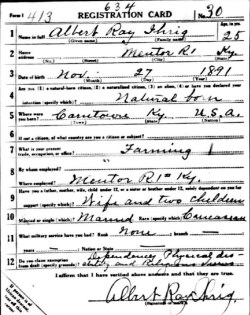 634
Form 1 413 REGISTRATION CARD No. 30
1 Name in full Albert Ray Ihrig Age, in yrs. 25
(Given name) (Family name)
2 Home address Mentor R1 Ky.
3 Date of birth Nov. 27 1891
(Month) (Day) (Year)
4 Are you (1) a natural-born citizen, (2) a naturalized citizen, (3) an alien, (4) or have you declared your
intention (specify which)? Natural born
5 Where were you born? Ky. U.S.A.
6 If not a citizen, of what country are you a citizen or subject?
7 What is your present trade, occupation, or office? Farming
8 By whom employed?
Where employed? Mentor R1 Ky.
9 Have you a father, mother, wife, child under 12, or a sister or brother under 12, solely dependent on you for
support (specify which)? Wife and two children
10 Married or single (which)? Married Race (specify which)? Caucasian
11 What military service have you had? Rank None
branch
years Nation or State
12 Do you claim exemption from draft (specify grounds)? Dependence, Physical dis-
ability and Religious
I affirm that I have verified above answers and that they are true.
Albert Ray Ihrig